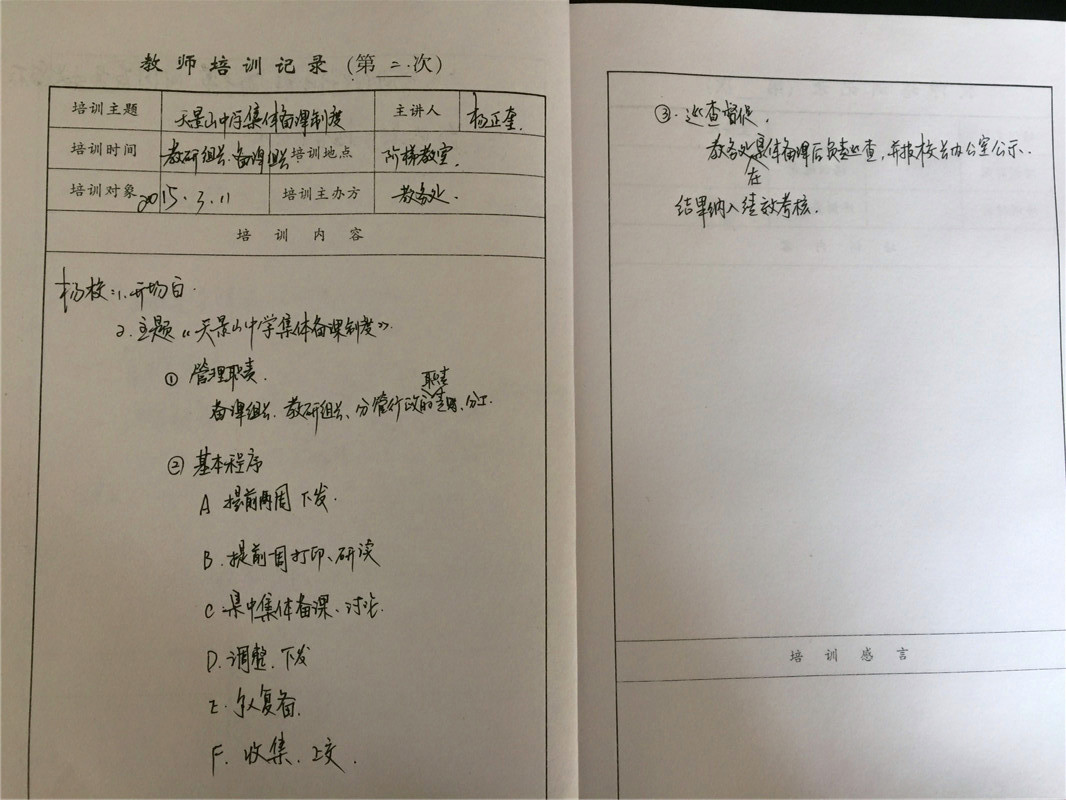 教师培训记录（第二次）
培训主题 天景山中学集体备课制度 主讲人 杨正奎
培训时间 教研组长、备课组长 培训地点 阶梯教室
培训对象 2015.3.11 培训主办方 教务处.
培训内容
杨校:1.开场白.
2.主题《天景山中学集体备课制度》.
① 管理职责.
职责
备课组长、教研组长、分管行政的、分工.
② 基本程序
A 提前两周下发.
B.提前一周打印、研读
C 集中集体备课、讨论.
D.调整、下发
E.个人复备.
F.收集、上交.
③.巡查督促.
教务处集体备课后负责巡查,并报校长办公室公示.
在
结果纳入绩效考核.
培训感言